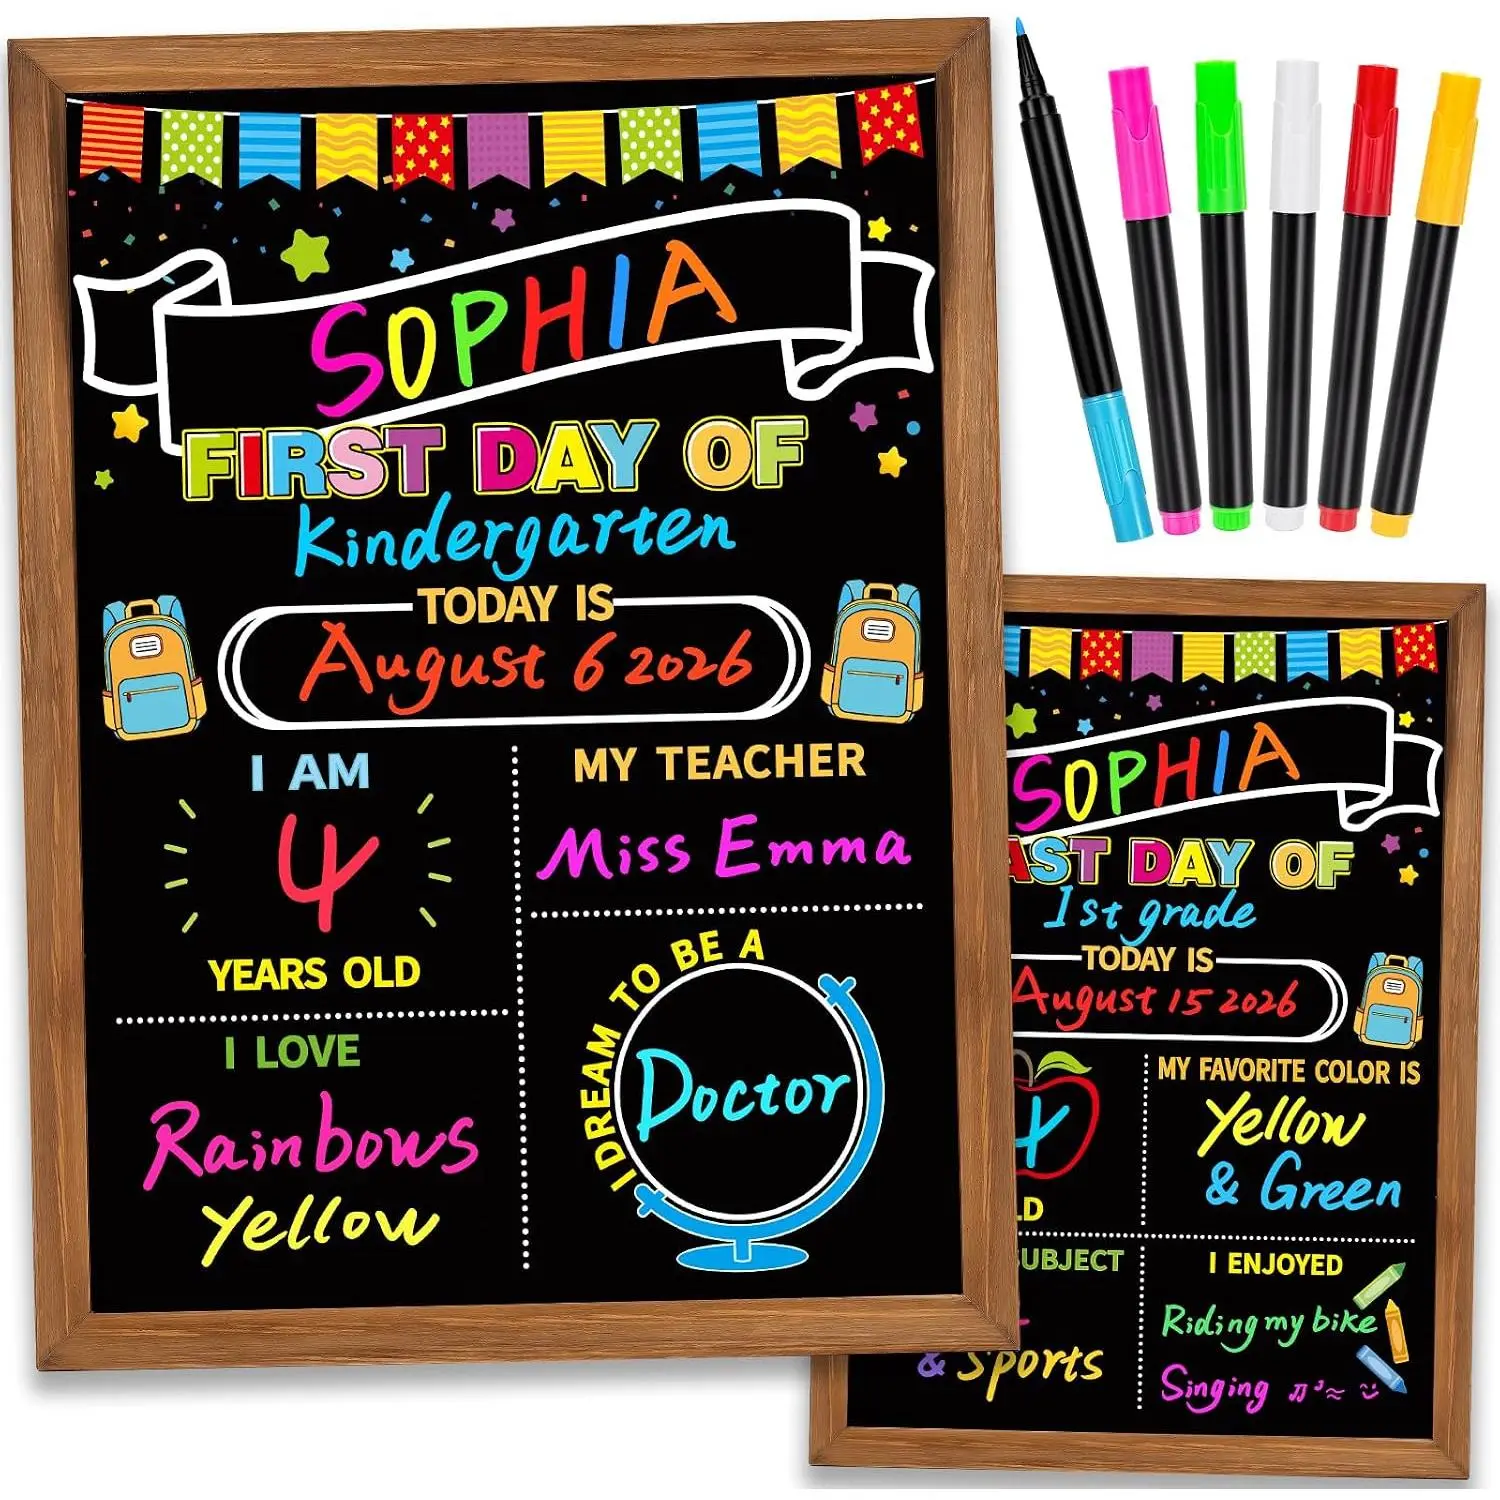 SOPHIA
FIRST DAY OF
Kindergarten
TODAY IS
August 6 2026
I AM
4
YEARS OLD
MY TEACHER
Miss Emma
I LOVE
Rainbows
Yellow
I DREAM TO BE A
Doctor
SOPHIA
AST DAY OF
1st grade
TODAY IS
August 15 2026
4
LD
MY FAVORITE COLOR IS
Yellow
& Green
UBJECT
& Sports
I ENJOYED
Riding my bike
Singing